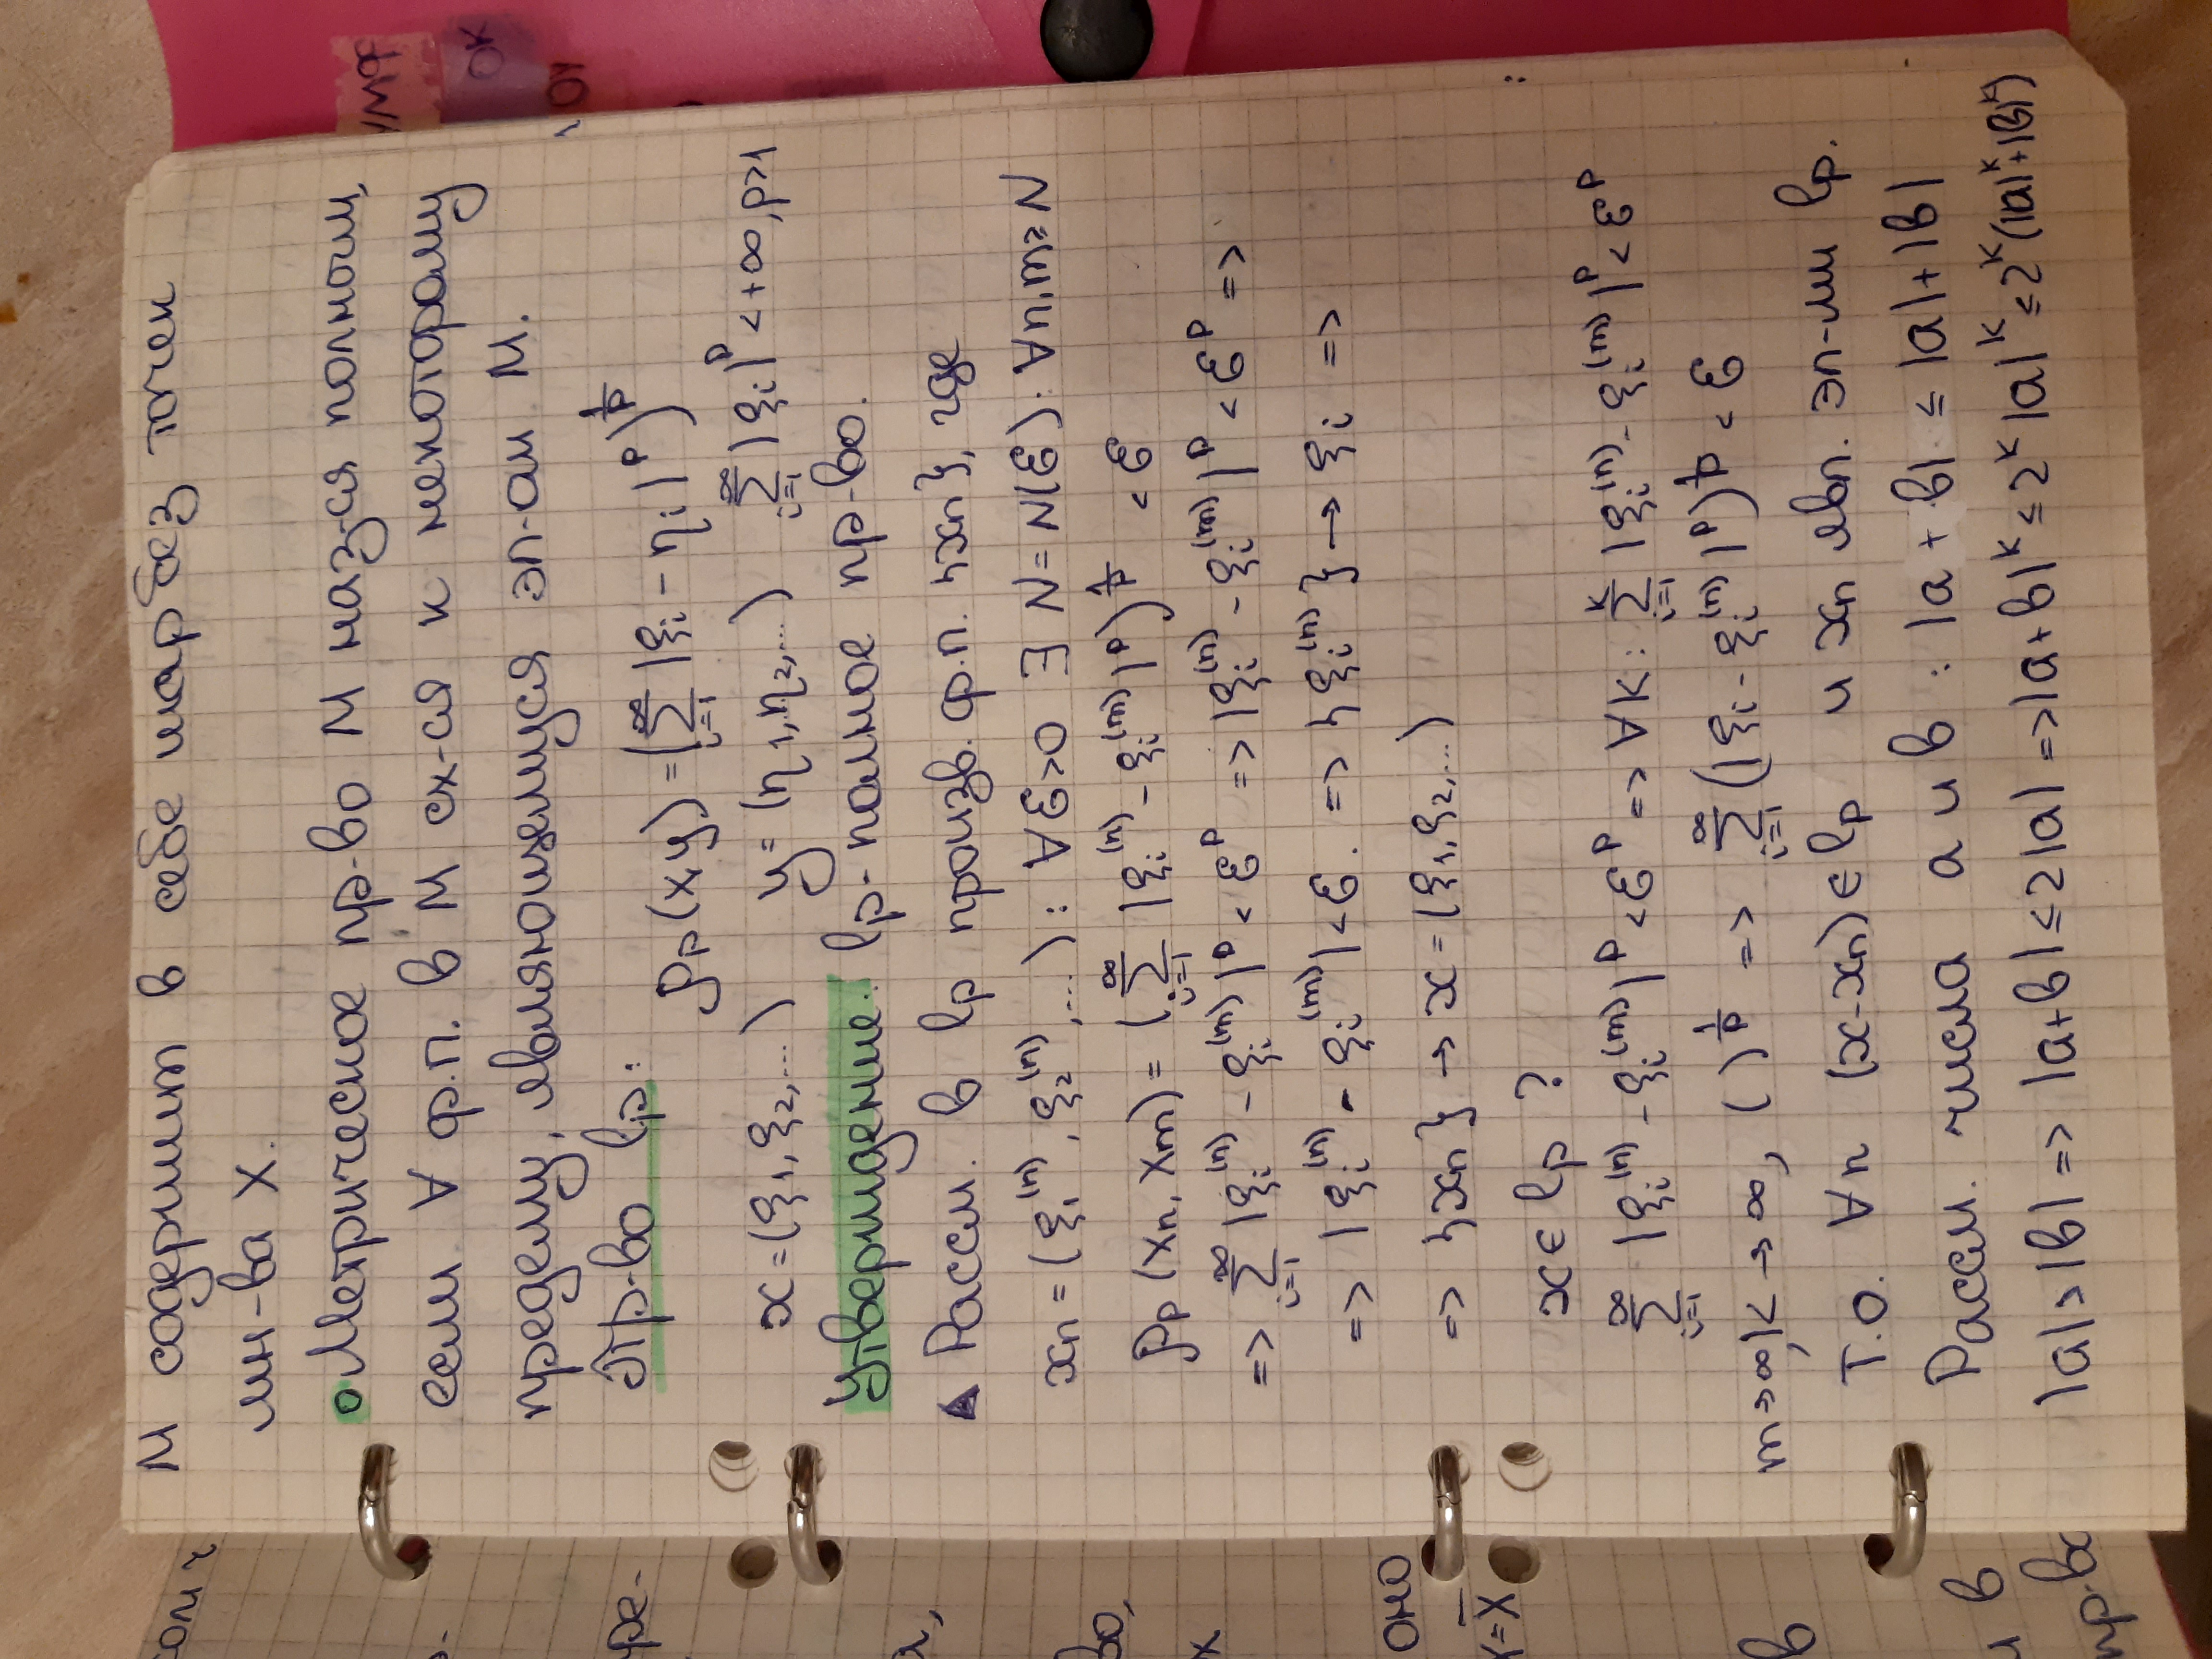 М содержит в себе шар без точек
мн-ва X.
о Метрическое пр-во М наз-ся полным,
если ∀ ф.п. в М сх-ся к некоторому
пределу, являющемуся эл-ом М.
Пр-во lp: ρp(x,y) = (∑_{i=1}^{∞} |ξi - ηi|^p)^{1/p}
x = (ξ1, ξ2, ...) y = (η1, η2, ...) ∑_{i=1}^{∞} |ξi|^p < +∞, p≥1
Утверждение: lp - полное пр-во.
▲ Рассм. в lp произв. ф.п. {xn}, где
xn = (ξ1^(n), ξ2^(n), ...) : ∀ε>0 ∃ N = N(ε): ∀n,m ≥ N
ρp(xn, xm) = (∑_{i=1}^{∞} |ξi^(n) - ξi^(m)|^p)^{1/p} < ε
=> ∑_{i=1}^{∞} |ξi^(n) - ξi^(m)|^p < ε^p => |ξi^(n) - ξi^(m)|^p < ε^p =>
=> |ξi^(n) - ξi^(m)| < ε. => {ξi^(n)} → ξi =>
=> {xn} → x = (ξ1, ξ2, ...)
x ∈ lp ?
∑_{i=1}^{∞} |ξi^(n) - ξi^(m)|^p < ε^p => ∀k: ∑_{i=1}^{k} |ξi^(n) - ξi^(m)|^p < ε^p
m→∞, k→∞, ( )^{1/p} => ∑_{i=1}^{∞} (|ξi - ξi^(n)|^p)^{1/p} < ε
Т.О. ∀n (x-xn) ∈ lp и xn явл. эл-ми lp.
Рассм. числа a и b : |a+b| ≤ |a|+|b|
|a| > |b| => |a+b| ≤ 2|a| => |a+b|^k ≤ 2^k |a|^k ≤ 2^k (|a|^k + |b|^k)
УМФ
ОК
оно
X = X̄
в
и в